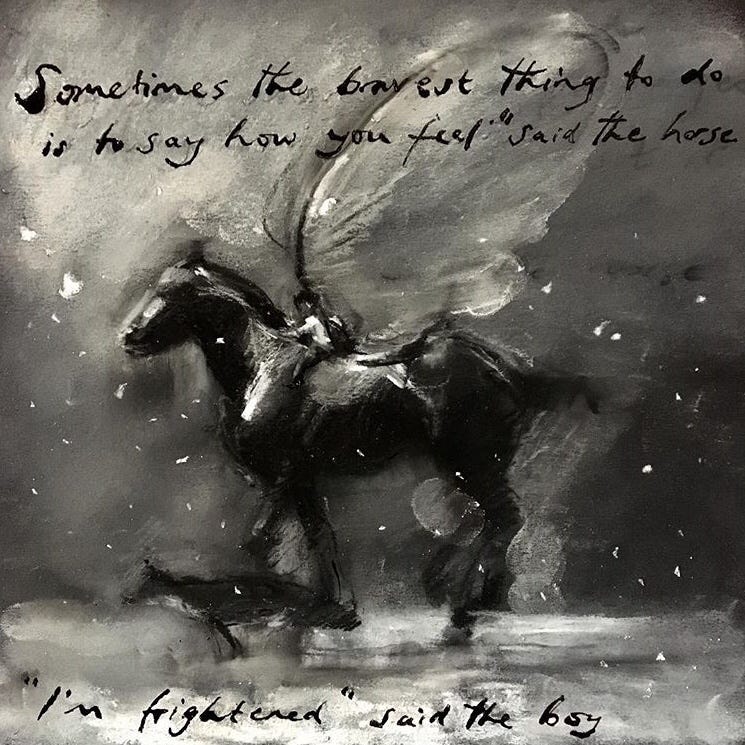 Sometimes the bravest thing to do
is to say how you feel." said the horse
"I'm frightened" said the boy